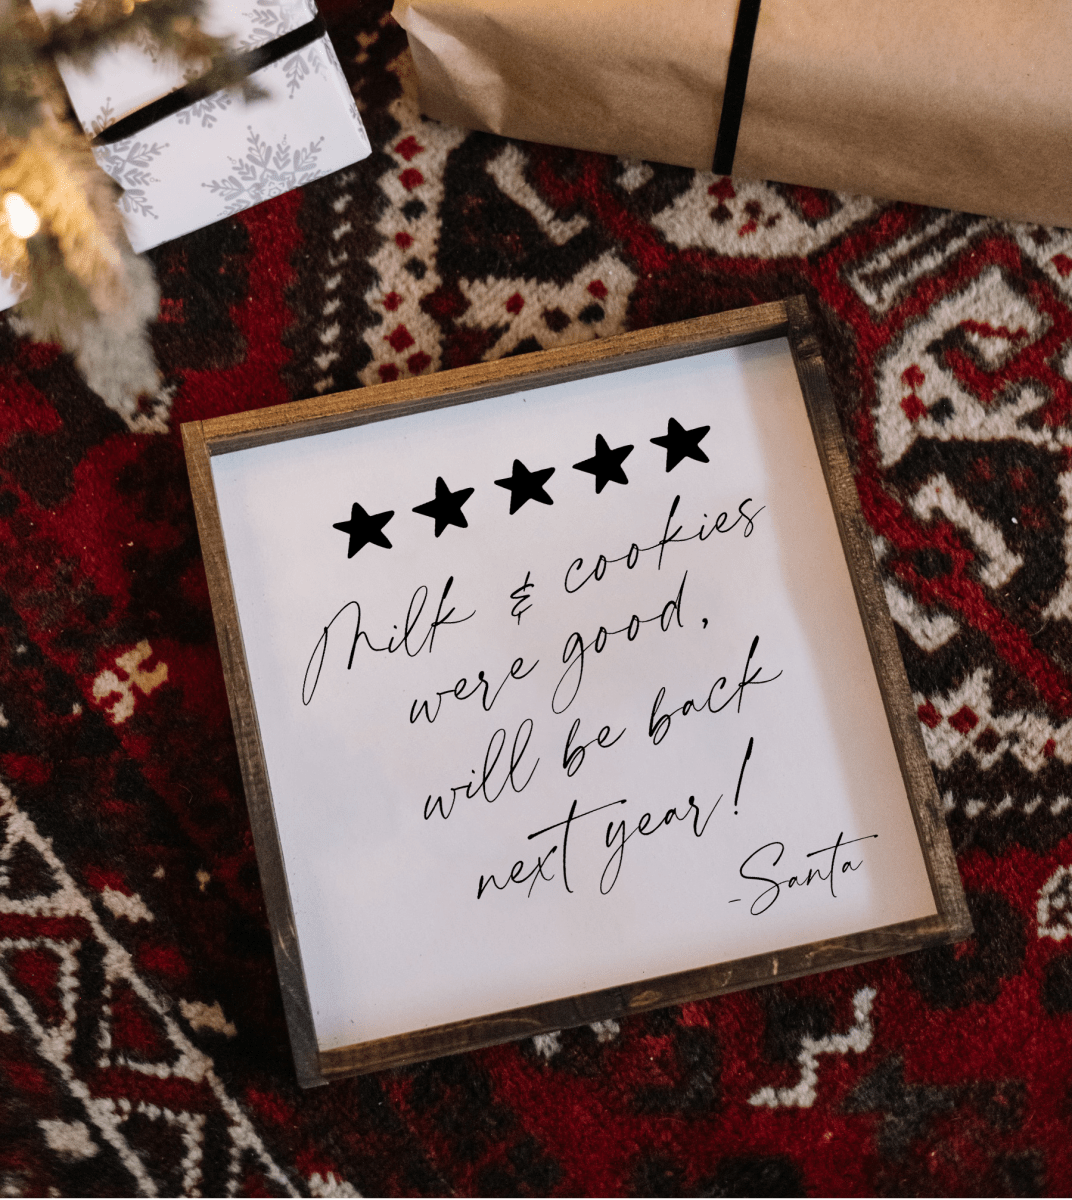 Milk & cookies
were good,
will be back
next year!
-Santa